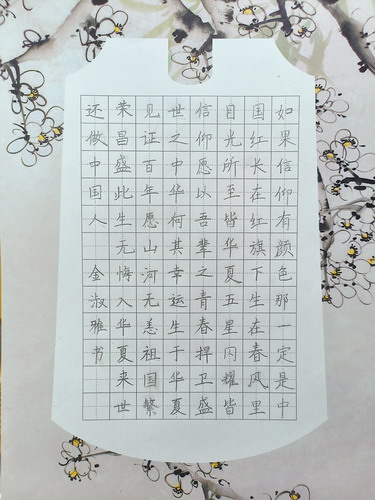 如果信仰有颜色那一定是中
国红长在红旗下生在春风里
目光所至皆华夏五星闪耀皆
信仰愿以吾辈之青春捍卫盛
世之中华何其幸运生于华夏
见证百年愿山河无恙祖国繁
荣昌盛此生无悔入华夏来世
还做中国人 金淑雅书